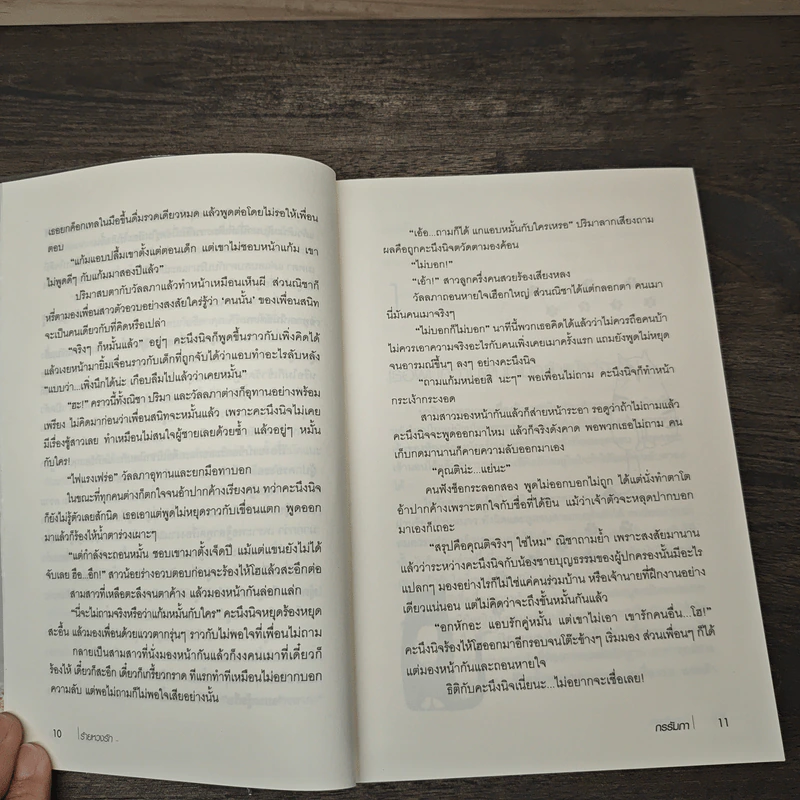 เธอยกค็อกเทลในมือขึ้นดื่มรวดเดียวหมด แล้วพูดต่อโดยไม่รอให้เพื่อน
ตอบ
“แก้มแอบปลื้มเขาตั้งแต่ตอนเด็ก แต่เขาไม่ชอบหน้าแก้ม เขา
ไม่พูดดีๆ กับแก้มมาสองปีแล้ว”
ปริมาสบตากับวัลลภาแล้วทำหน้าเหมือนเห็นผี ส่วนณิชาก็
หรี่ตามองเพื่อนสาวตัวอวบอย่างสงสัยใคร่รู้ว่า ‘คนนั้น’ ของเพื่อนสนิท
จะเป็นคนเดียวกับที่คิดหรือเปล่า
“จริงๆ ก็หมั้นแล้ว” อยู่ๆ คะนึงนิจก็พูดขึ้นราวกับเพิ่งคิดได้
แล้วเงยหน้ามายิ้มเจื่อนราวกับเด็กที่ถูกจับได้ว่าแอบทำอะไรลับหลัง
“แบบว่า...เพิ่งนึกได้น่ะ เกือบลืมไปแล้วว่าเคยหมั้น”
“ฮะ!” คราวนี้ทั้งณิชา ปริมา และวัลลภาต่างก็อุทานอย่างพร้อม
เพรียง ไม่คิดมาก่อนว่าเพื่อนสนิทจะหมั้นแล้ว เพราะคะนึงนิจไม่เคย
มีเรื่องชู้สาวเลย ทำเหมือนไม่สนใจผู้ชายเลยด้วยซ้ำ แล้วอยู่ๆ หมั้น
กับใคร!
“ไฟแรงเฟร่อ” วัลลภาอุทานและยกมือทาบอก
ในขณะที่ทุกคนต่างก็ตกใจจนอ้าปากค้างเรียงคน ทว่าคะนึงนิจ
ก็ยังไม่รู้ตัวเลยสักนิด เธอเอาแต่พูดไม่หยุดราวกับเขื่อนแตก พูดออก
มาแล้วก็ร้องไห้น้ำตาร่วงเผาะๆ
“แต่กำลังจะถอนหมั้น ชอบเขามาตั้งเจ็ดปี แม้แต่แขนยังไม่ได้
จับเลย ฮือ...อึก!” สาวน้อยร่างอวบตอบก่อนจะร้องไห้โฮแล้วสะอึกต่อ
สามสาวที่เหลือตะลึงจนตาค้าง แล้วมองหน้ากันล่อกแล่ก
“นี่จะไม่ถามจริงหรือว่าแก้มหมั้นกับใคร” คะนึงนิจหยุดร้องหยุด
สะอื้น แล้วมองเพื่อนด้วยแววตากรุ่นๆ ราวกับไม่พอใจที่เพื่อนไม่ถาม
กลายเป็นสามสาวที่นั่งมองหน้ากันแล้วก็งงคนเมาที่เดี๋ยวก็
ร้องไห้ เดี๋ยวก็สะอึก เดี๋ยวก็เกรี้ยวกราด ทีแรกทำทีเหมือนไม่อยากบอก
ความลับ แต่พอไม่ถามก็ไม่พอใจเสียอย่างนั้น
10 | ร้ายหวงรัก
“เอ้อ...ถามก็ได้ แกแอบหมั้นกับใครเหรอ” ปริมาลากเสียงถาม
ผลคือถูกคะนึงนิจตวัดตามองค้อน
“ไม่บอก!”
“เอ้า!” สาวลูกครึ่งคนสวยร้องเสียงหลง
วัลลภาถอนหายใจเฮือกใหญ่ ส่วนณิชาได้แต่กลอกตา คนเมา
นี่มันคนเมาจริงๆ
“ไม่บอกก็ไม่บอก” นาทีนี้พวกเธอคิดได้แล้วว่าไม่ควรถือคนบ้า
ไม่ควรเอาความจริงอะไรกับคนเพิ่งเคยเมาครั้งแรก แถมยังพูดไม่หยุด
จนอารมณ์ขึ้นๆ ลงๆ อย่างคะนึงนิจ
“ถามแก้มหน่อยสิ นะๆ” พอเพื่อนไม่ถาม คะนึงนิจก็ทำหน้า
กระเง้ากระงอด
สามสาวมองหน้ากันแล้วก็ส่ายหน้าระอา รอดูว่าถ้าไม่ถามแล้ว
คะนึงนิจจะพูดออกมาไหม แล้วก็จริงดังคาด พอพวกเธอไม่ถาม คน
เก็บกดมานานก็คายความลับออกมาเอง
“คุณติน่ะ...แย่นะ”
คนฟังช็อกระลอกสอง พูดไม่ออกบอกไม่ถูก ได้แต่นั่งทำตาโต
อ้าปากค้างเพราะตกใจกับชื่อที่ได้ยิน แม้ว่าเจ้าตัวจะหลุดปากบอก
มาเองก็เถอะ
“สรุปคือคุณติจริงๆ ใช่ไหม” ณิชาถามย้ำ เพราะสงสัยมานาน
แล้วว่าระหว่างคะนึงนิจกับน้องชายบุญธรรมของผู้ปกครองนั้นมีอะไร
แปลกๆ มองอย่างไรก็ไม่ใช่แค่คนร่วมบ้าน หรือเจ้านายที่ฝึกงานอย่าง
เดียวแน่นอน แต่ไม่คิดว่าจะถึงขั้นหมั้นกันแล้ว
“อกหักอะ แอบรักคู่หมั้น แต่เขาไม่เอา เขารักคนอื่น...โฮ!”
คะนึงนิจร้องไห้โฮออกมาอีกรอบจนโต๊ะข้างๆ เริ่มมอง ส่วนเพื่อนๆ ก็ได้
แต่มองหน้ากันและถอนหายใจ
ธิติกับคะนึงนิจเนี่ยนะ...ไม่อยากจะเชื่อเลย!
กรรัมภา | 11